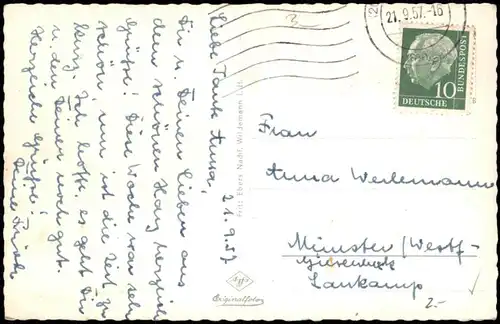 21.9.57.-16
DEUTSCHE
BUNDESPOST
10
Liebe Tante Anna,
21.9.57
Dir u. Deinen Lieben aus
dem schönen Harz herzliche
Grüße! Diese Woche war sehr
schön, nur ist die Zeit zu
kurz. Ich hoffe, es geht Dir
u. den Deinen recht gut.
Herzliche Grüße!
Deine
Fritz Ebers Nachf. Wildemann
Agfa
Originalfoto
Frau
Anna Weilemann
Münster/Westf.
Lankamp
2.-